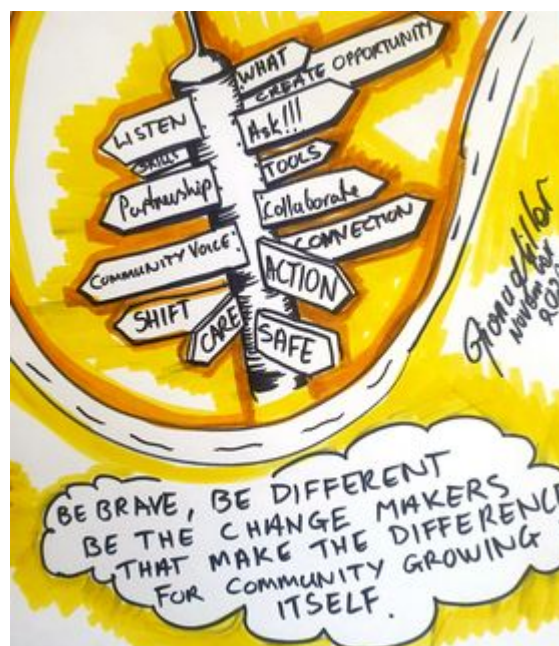 WHAT
CREATE OPPORTUNITY
LISTEN
Ask!!!
SKILLS
TOOLS
Partnership
Collaborate
CONVECTION
COMMUNITY VOICE
ACTION
SHIFT
CARE
SAFE
BE BRAVE, BE DIFFERENT
BE THE CHANGE MAKERS
THAT MAKE THE DIFFERENCE
FOR COMMUNITY GROWING
ITSELF.